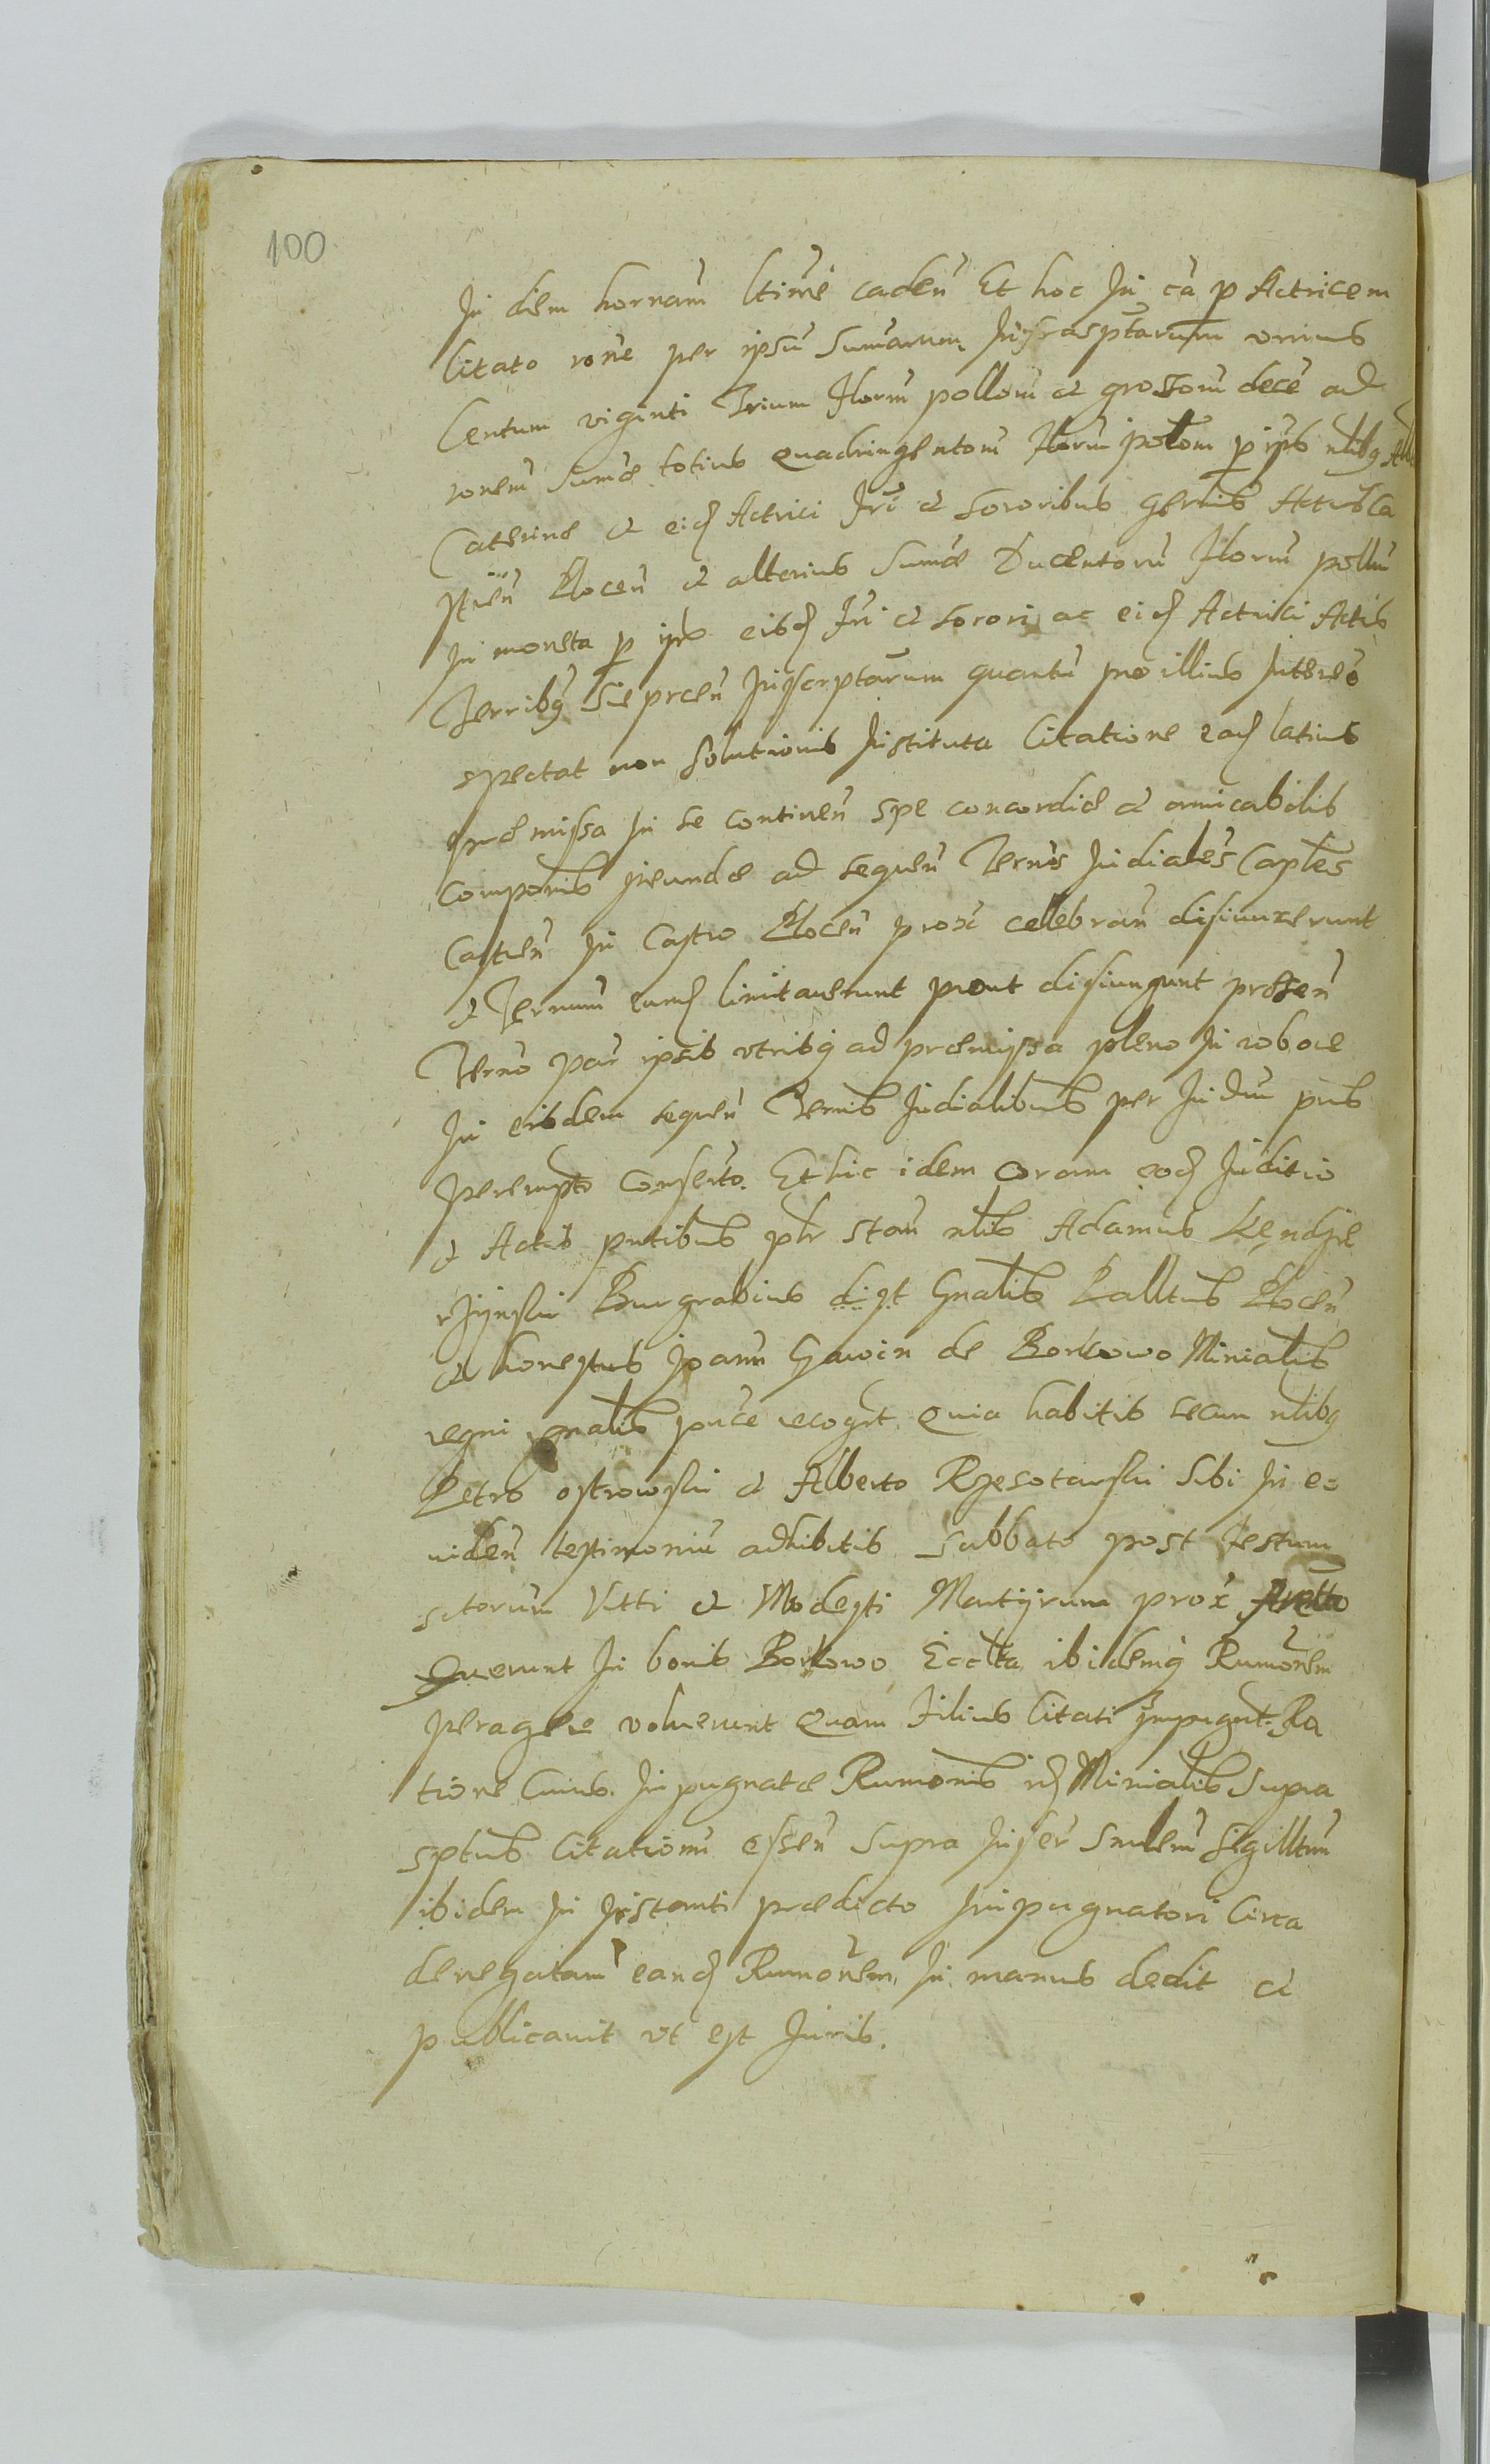 100
In diem hornam ltime caden Et hoc In ca p Actricem
Citato rone per ipsu sumarum Infrasptarum vnius
Centum viginti Trium florm pollom et grossom dece ad
ronem sume totius quadringentom florm polom p ips nlibq
Caterine et eid Actrici fri et sororibus germis Actis Ca
stren Plocen et alterius sume Ducentorum florm pollm
In moneta p ips eisd fri et sorori ac eid Actrici Actis
Terribq Sieprcen Inscrptarum quantu pro illius Interes
spectat non solutionis Instituta Citatione ead latius
præmissa In se continen spe concordiæ et amicabilis
componis ineundæ ad sequen Termis Judiales Caples
Castren In Castro Plocen prox celebran disiunxerunt
et Termum eund limitauerunt prout disiungunt præsen
Termo par ipsis vtribq ad præmissa pleno In robore
In eisdem sequen Termis Judialibus per Judiu pns
perempto conserto. Et hic idem coram eod Juditio
et Actis pntibus plr stan nlis Adamus Kendzie
rzynski Burgrabius digt Gnalis Palltus Plocen
et honestus Joann Gawin de Borkowo Minialis
regni gnalis puce recogrt quia habitis secum nlibq
Petro ostrowski et Alberto Rzesotarski Sibi In e=
uiden testimoniu adhibitis Sabbato post festum
sctorum Vitti et Modesti Martyrum prox
In bonis Borkowo Ecclta ibidemq Rumonem
peragere voluerunt quam filius Citati Impugnt. Ra
tione Cuius Inpugnatæ Rumonis id Minialis Supra
sptus Citationu essen supra Inser smilem sigilltm
ibidem In Instanti prædicto Impugnatori Circa
denegatam eand Rumonem In manus dedit et
publicauit vt est Juris.